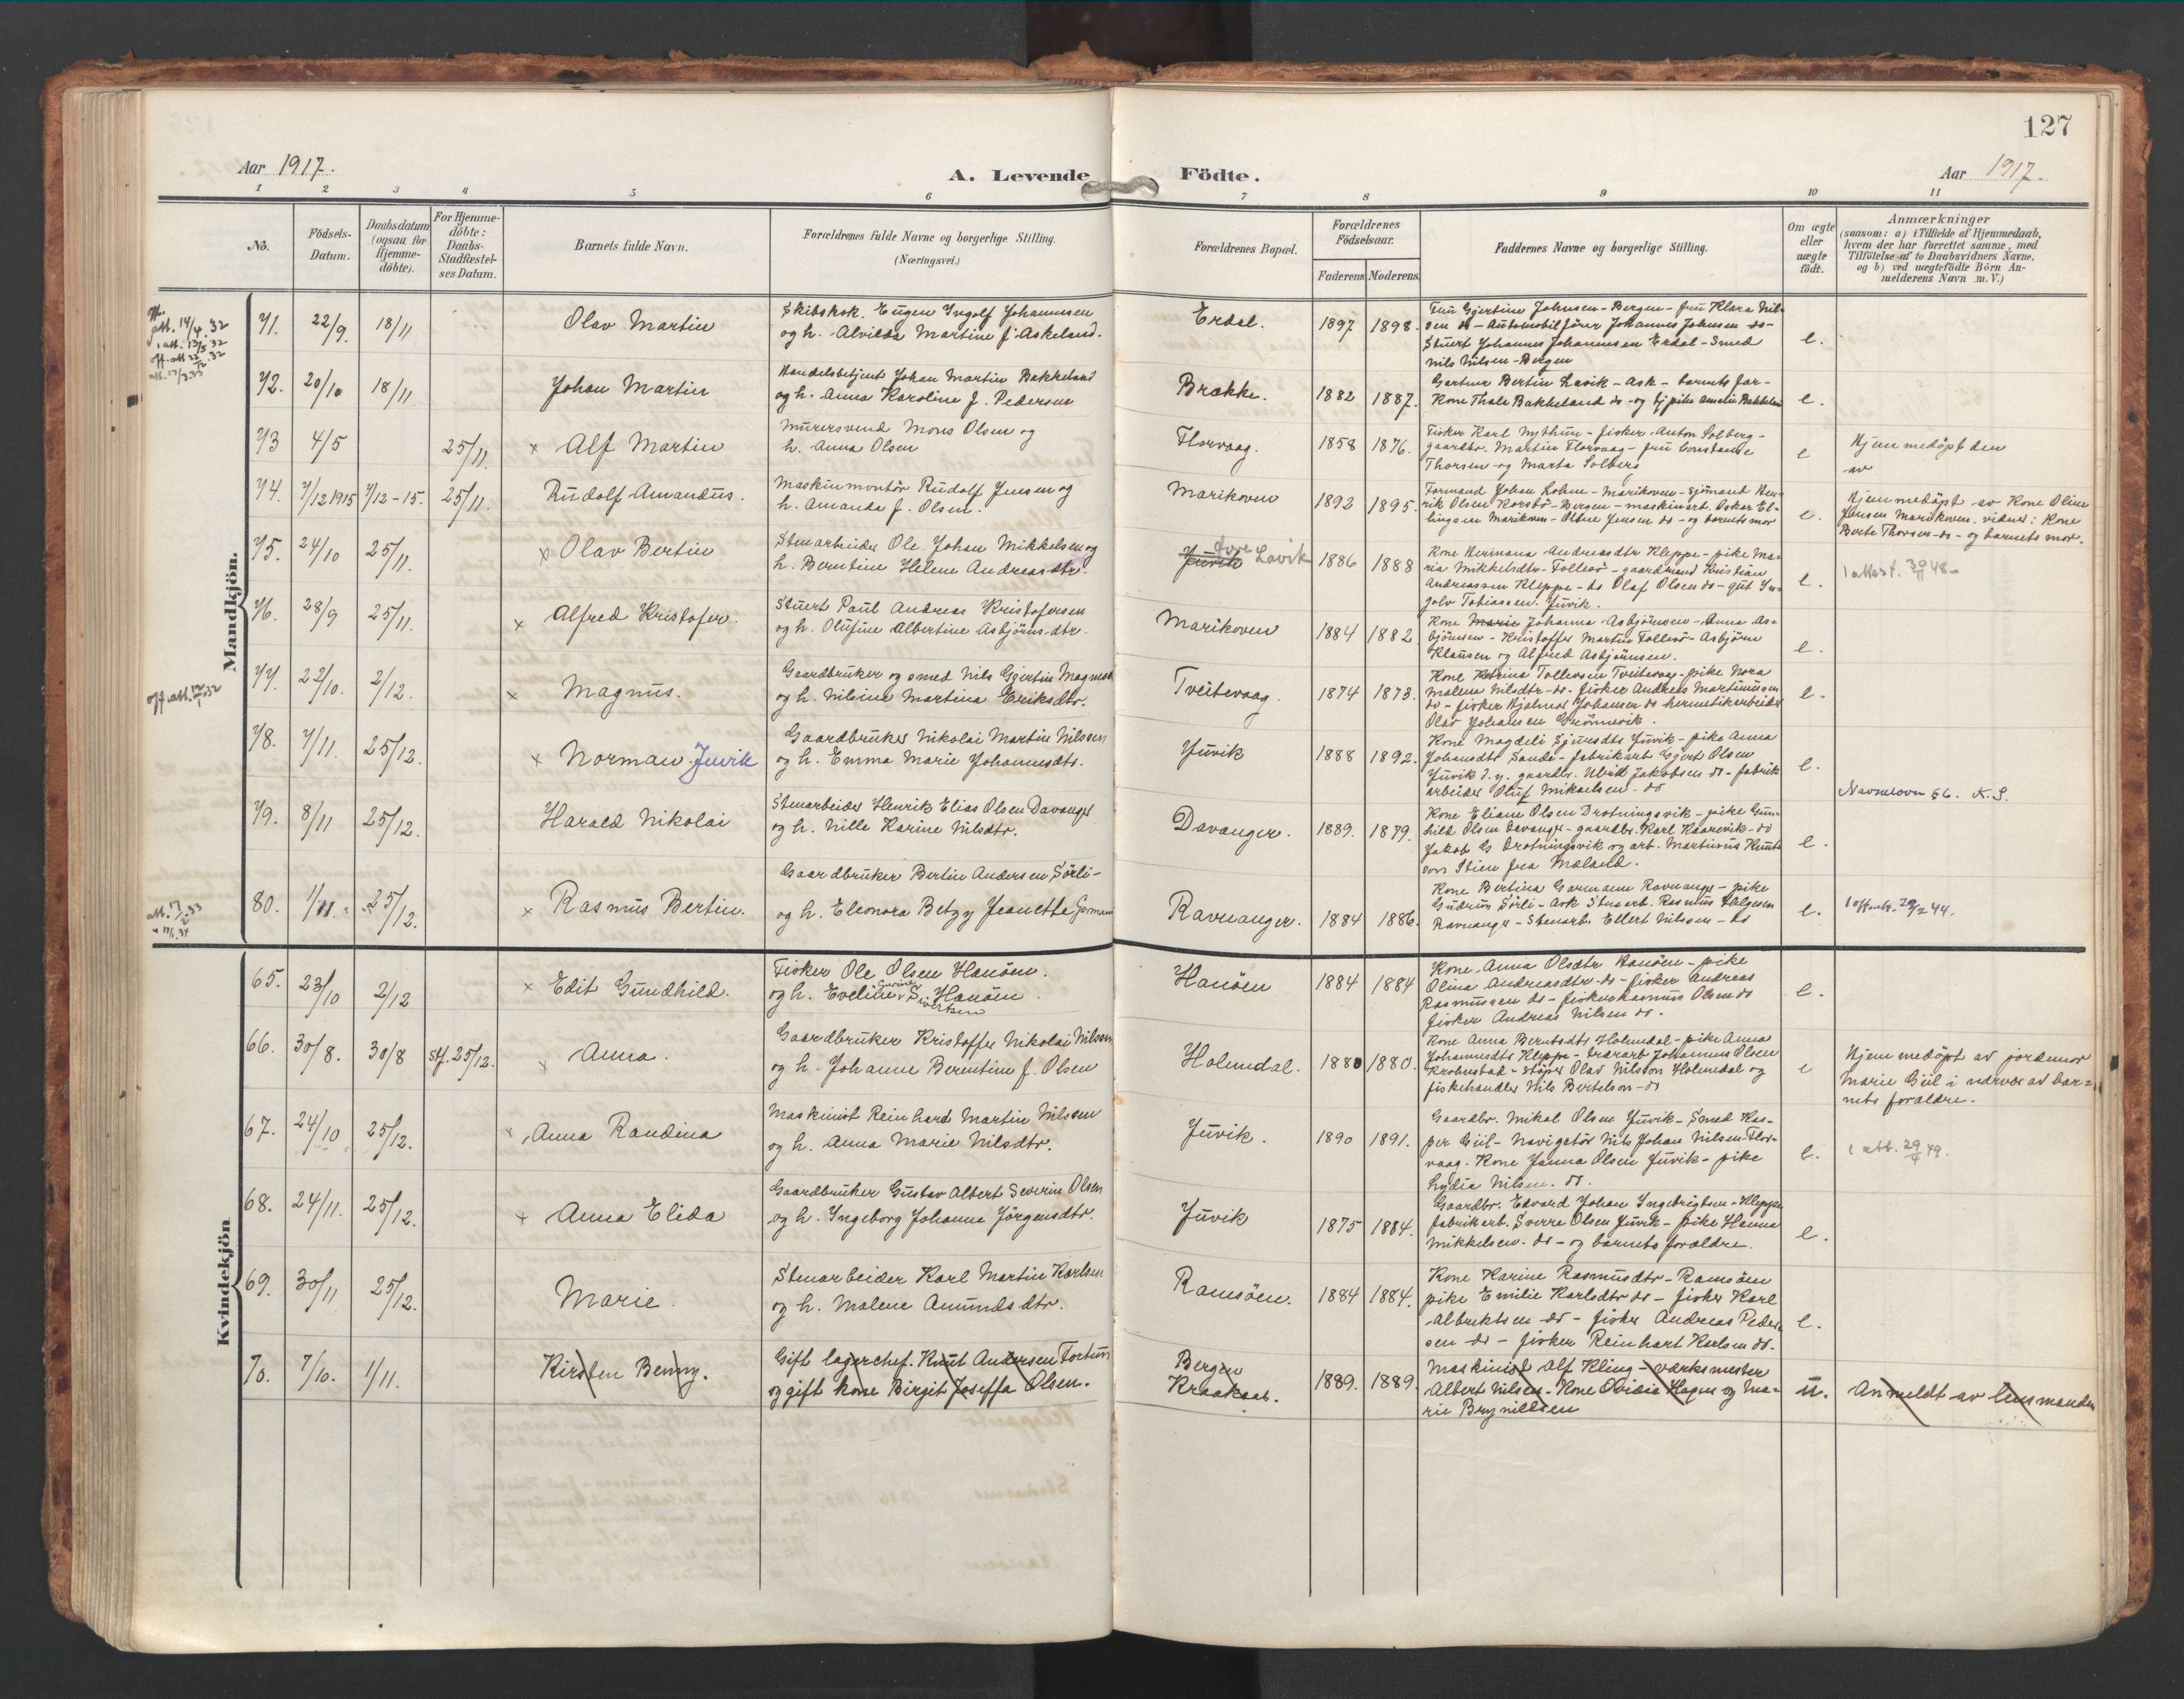 127
Aar 1917.
A. Levende Födte.
Aar 1917.
1 2 3 4 5 6 7 8 9 10 11
No.
Födsels-
Datum.
Daabsdatum
(ogsaa for
Hjemme-
döbte).
For Hjemme-
döbte:
Daabs-
Stadfæstel-
ses Datum.
Barnets fulde Navn.
Forældrenes fulde Navne og borgerlige Stilling.
(Næringsvei.)
Forældrenes Bopæl.
Forældrenes
Födselsaar.
Faderens Moderens
Faddernes Navne og borgerlige Stilling.
Om ægte
eller
uægte
födt.
Anmærkninger
(saasom: a) i Tilfælde af Hjemmedaab,
hvem der har forrettet samme, med
Tilföielse af to Daabsvidners Navne.
og b) ved uægtefödte Börn An-
melderens Navn m. V.)
Mandkjön.
att. 14/4. 32
1 att. 13/5 32
off. att 23/12. 32
att. 17/3.33
71. 22/9. 18/11 Olav Martin
Skibskok. Eugen Ingolf Johannesen
og h. Alvilda Martine f. Askeland.
Erdal. 1897 1898.
Fru Gjertine Johnsen - Bergen - fru Klara Nil-
sen do - Automobilförer Johannes Johnsen do -
Stuert Johannes Johannesen Erdal - Smed
Nils Nilsen - Bergen
e.
72. 20/10 18/11 Johan Martin
Handelsbetjent Johan Martin Bakkeland
og h. Anna Karoline f. Pedersen
Brække. 1882 1887.
Gartner Bertin Lavik - Ask - barnets far -
Kone Thale Bakkeland do - og tj. pike Amalie Bakkeland
e.
73 4/5 25/11. x Alf Martin
Murersvend Mons Olsen og
h. Anna Olsen
Florvaag. 1858 1876.
Fisker Karl Nythun - fisker Anton Solberg -
gaardbr. Martin Florvaag - fru Constance
Thorsen og Marta Solberg
e
Hjemmedöpt den
av
74. 7/12 1915 7/12-15. 25/11. Rudolf Amandus.
Maskinmontör Rudolf Jensen og
h. Amanda f. Olsen.
Marikoven 1892 1895.
Formand Johan Lohne - Marikoven - sjömand Hen-
rik Olsen Korsbö - Bergen - maskinarb. Oskar El-
lingsen Marikoven - Oline Jensen do - og barnets mor
e.
Hjemmedöpt av Kone Oline
Jensen Marikoven, vidner: Kone
Berte Thorsen - do - og barnets mor.
75. 24/10 25/11. x Olav Bertin
Stenarbeider Ole Johan Mikkelsen og
h. Berntine Helene Andreasdtr.
Juvik Lavik 1886 1888
Kone Hermana Andreasdtr Kleppe - pike Ma-
ria Mikkelsdtr - Follesö - gaardmand Kristian
Andreassen Kleppe - do Olaf Olsen do - gut In-
golv Tobiassen. Juvik.
e.
1 attest. 30/11 48
76. 28/9 25/11. x Alfred Kristofer.
Stuert Paul Andreas Kristofersen
og h. Olufine Albertine Asbjörnsdtr.
Marikoven 1884 1882
Kone Marie Johanna Asbjörnsen - Anna As-
björnsen - Kristoffer Martin Follesö - Asbjörn
Klausen og Alfred Asbjörnsen.
e.
off. att. 32
77. 22/10. 2/12. x Magnus.
Gaardbruker og smed Nils Gjertin Magnesen
og h. Nilsine Martina Eriksdtr.
Tveitevaag. 1874 1873.
Kone Katrina Tollevsen Tveitevaag - pike Nora
Malena Nilsdtr - do. fisker Andreas Martinussen
do - fisker Hjalmar Johansen do hermetikarbeider
Olav Johansen Grönnevik.
e.
78. 7/11. 25/12. x Norman Juvik
Gaardbruker Nikolai Martin Nilssen
og h. Emma Marie Johannesdtr.
Juvik 1888 1892.
Kone Magdeli Sjursdtr Juvik - pike Anna
Johansdtr Sande - fabrikarb Gjert Olsen
Juvik d.y. gaardbr. Ulrik Jakobsen do - fabrik
arbeider Oluf Mikaelsen - do
e.
Navneloven §6. K.S.
79. 8/11 25/12. Harald Nikolai
Stenarbeider Henrik Elias Olsen Davanger
og h. Nille Karine Nilsdtr.
Davanger. 1889. 1879.
Kone Eliane Olsen Drotningsvik - pike Gun-
hild Olsen Davanger - gaardbr. Karl Kaarevik - do
Jakob G Drotningsvik og arb. Martinus Knut-
sen Stien fra Mæland.
e.
att. 17/2 33
80. 1/11. 25/12. x Rasmus Bertin.
Gaardbruker Bertin Andersen Sörli -
og h. Eleonora Betzy Jeanette Garmann
Ravnanger. 1884 1886.
Kone Bertina Garmann Ravnanger - pike
Gudrun Sörli - Ask Stenarb. Rasmus Helgesen
Ravnanger - Stenarb. Ellert Nilssen - do
e.
1 off. att. 29/2 44.
Kvindekjön
65. 23/10 2/12 x Edit Gundhild.
Fisker Ole Olsen Hanöen.
og h. Eveline Hanöen.
Sivertsen
Hanöen 1884 1884
Kone. Anna Olsdtr Hanöen - pike
Olina Andreasdtr do - fisker Andreas
Rasmussen do - fisker Rasmus Olsen do
fisker Andreas Nilsen do.
e.
66. 30/8. 30/8 stf. 25/12. x Anna.
Gaardbruker Kristoffer Nikolai Nilssen
og h. Johanne Berentine f. Olsen
Holmdal. 1880 1880.
Kone Anna Berntsdtr Holmdal - pike Anna
Johannesdtr Kleppe - træarb Johannes Olsen
Krohnstad - stöper Olav Nilsson Holmedal og
fiskehandler Nils Bertelson - do
e
Hjemmedöpt av jordmor
Marie Giil i nærvær av bar-
nets forældre.
67. 24/10 25/12. x Anna Randina
Maskinist Reinhard Martin Nilssen
og h. Anna Marie Nilsdtr.
Juvik. 1890 1891.
Gaardbr. Mikal Olsen Juvik - Smed Kas-
per Giil - Navigatör Nils Johan Nilsen Flor-
vaag. Kone Janna Olsen Juvik - pike
Lydia Nilsen. do.
e.
1 att. 29/4 49.
68. 24/11. 25/12. x Anna Elida
Gaardbruker Gustav Albert Severin Olsen
og h. Ingeborg Johanna Jörgensdtr.
Juvik 1875 1884.
Gaardbr. Edvard Johan Ingebrigtsen - Kleppe
fabrikarb. Sverre Olsen Juvik - pike Hanna
Mikkelsen. do - og barnets forældre.
e.
69. 30/11 25/12. Marie.
Stenarbeider Karl Martin Karlsen
og h. Malene Amundsdtr.
Ramsöen. 1884 1884.
Kone Karine Rasmusdtr - Ramsöen
pike Emilie Karlsdtr do - fisker Karl
Albrektsen do - fisker Andreas Peder-
sen do - fisker Reinhart Karlsen do.
e.
70. 7/10. 1/11. Kirsten Benny.
Gift lagerchef. Knut Andersen Fortun
og gift kone Birgit Joseffa Olsen.
Bergen
Kraakaas. 1889. 1889.
Maskinist Alf Kling - værksmester
Albert Nilsen - Kone Ovidia Hagen og Ma-
rie Brynildsen
u.
Anmeldt av lensmanden